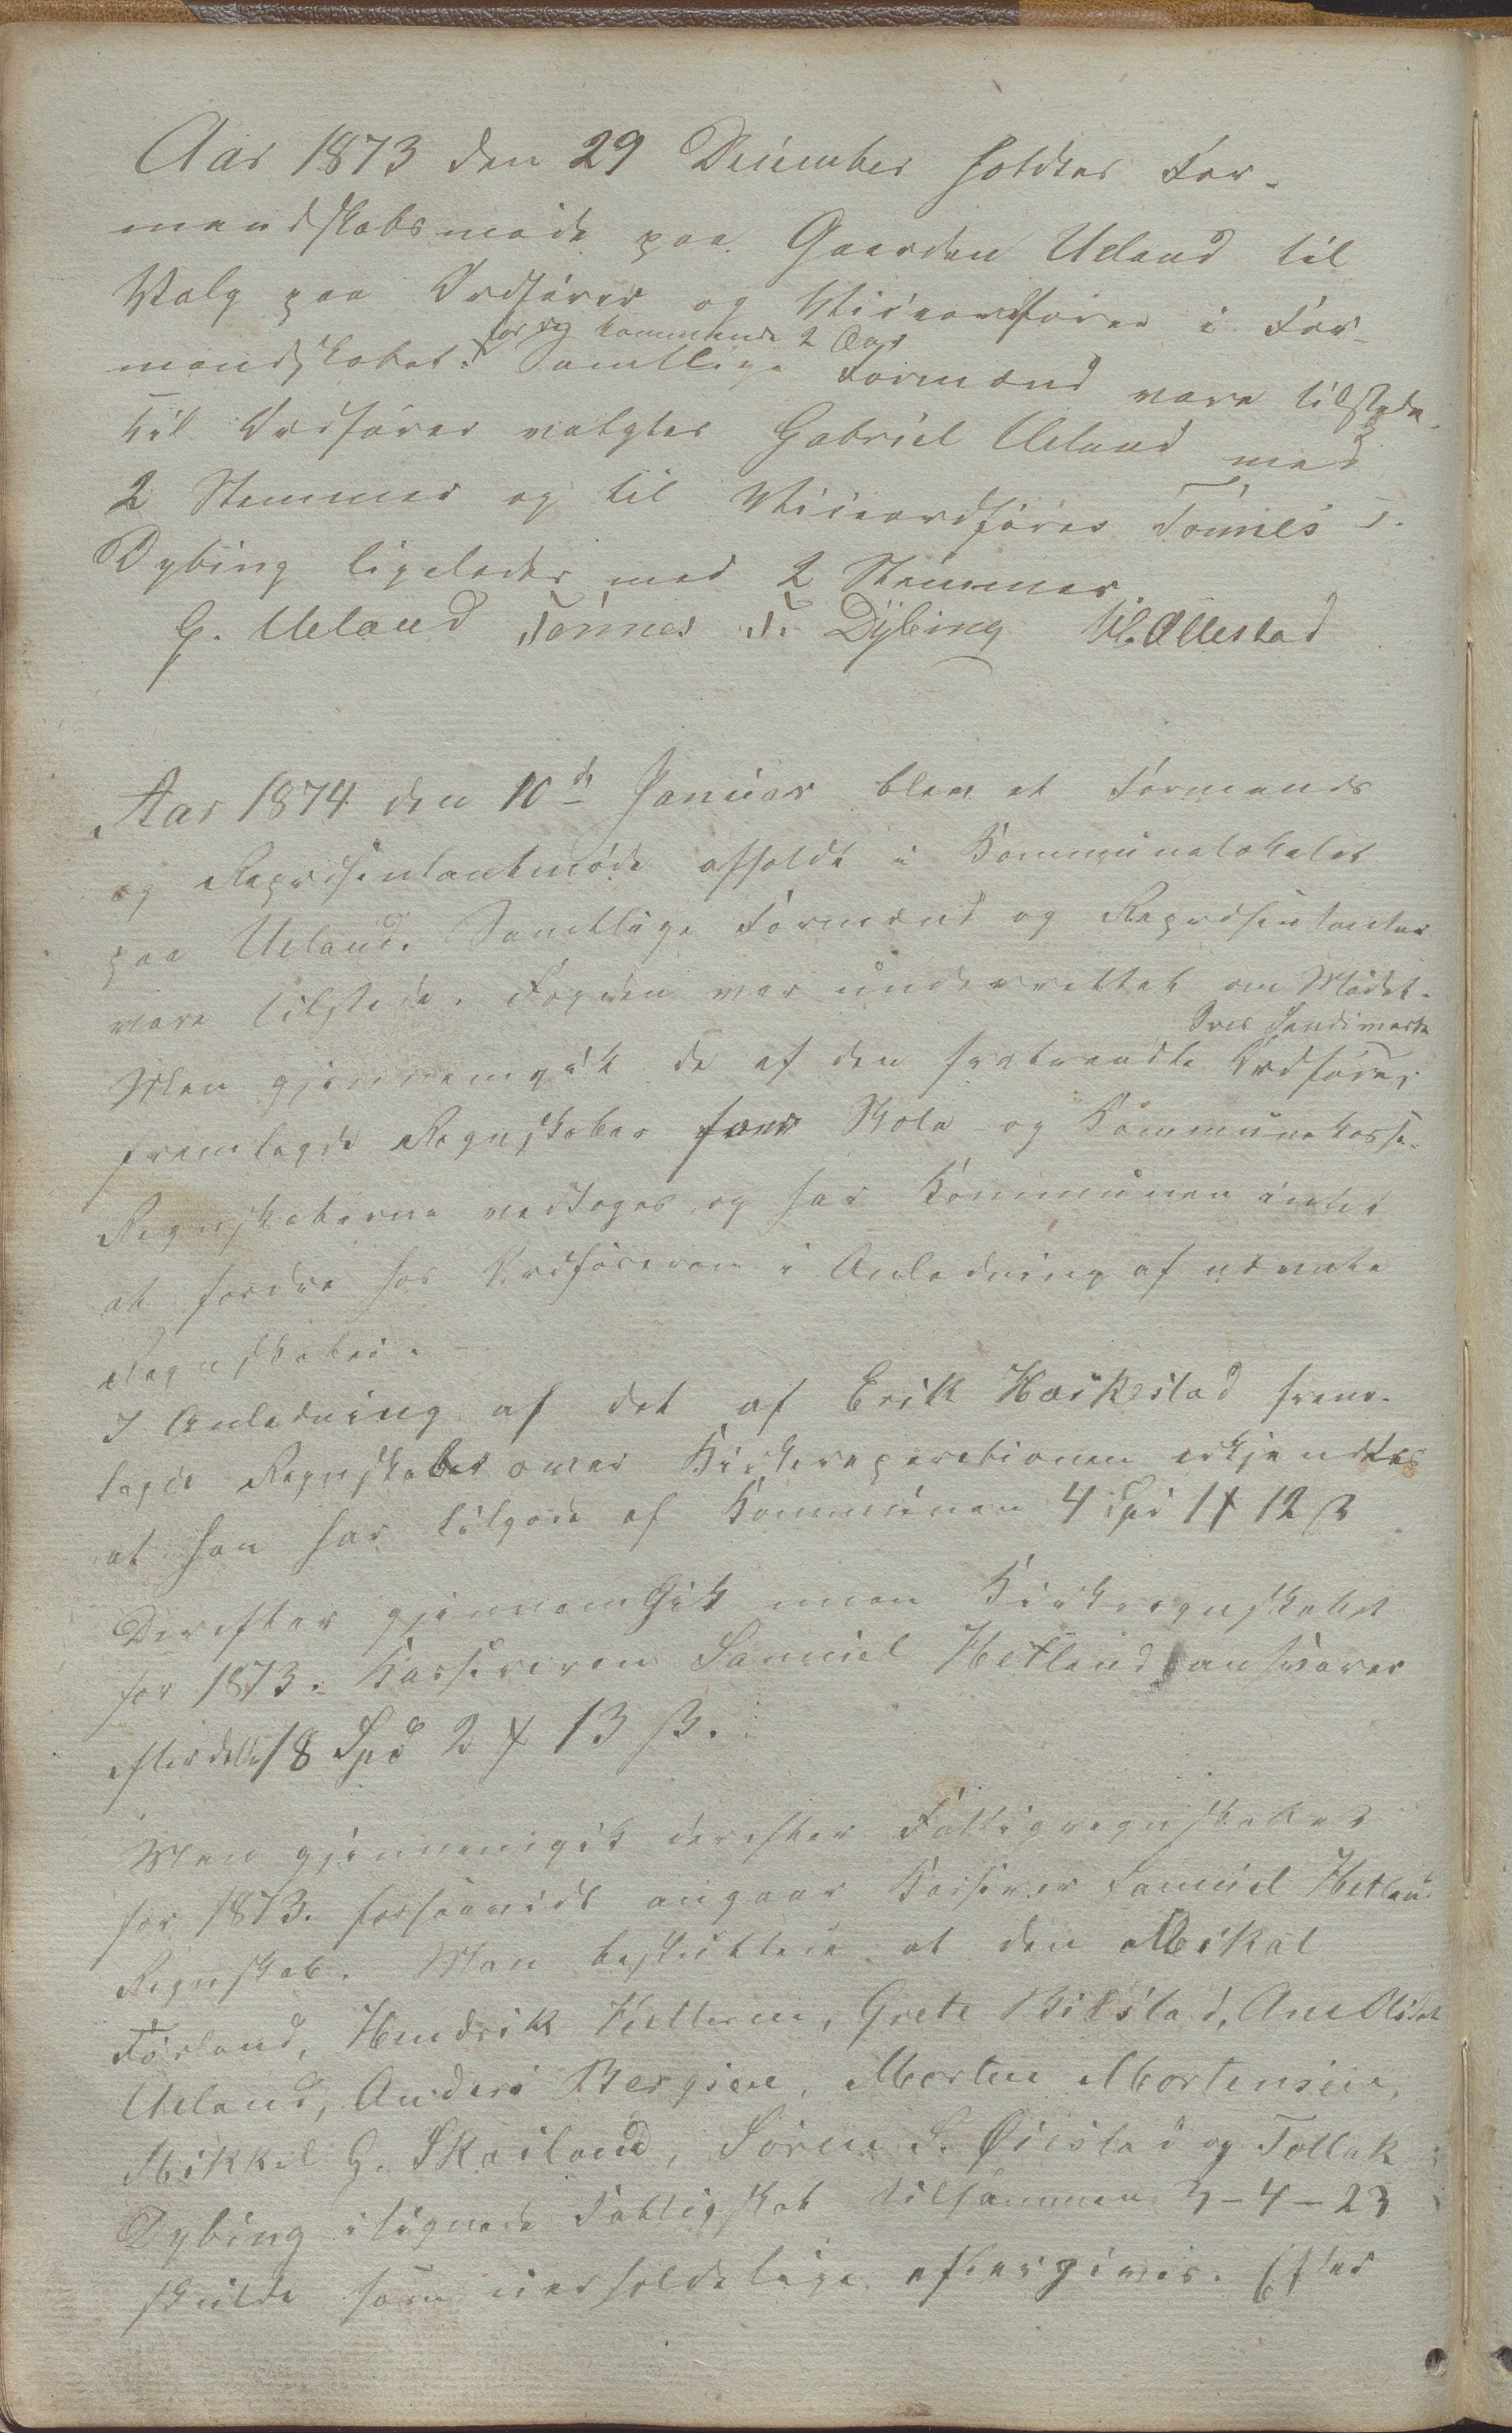 Aar 1873 den 29 December holdtes For-
mandskabsmøde paa Gaarden Ueland til
Valg paa Ordfører og Viceordfører i For-
for kommende 2 Aar
mandskabet. Samtlige Formænd vare tilstede.
Til Ordfører valgtes Gabriel Ueland med
2 Stemmer og til Viceordfører Tönnes T.
Dybing ligeledes med 2 Stemmer
G. Ueland Tønnes T. Dÿbing M. Ollestad
Aar 1874 den 10de Januar blev et Formands
og Repræsentantmøde afholdt i Kommunelokalet
paa Ueland. Samtlige Formænd og Repræsentanter
vare tilstede. Fogden var underrettet om Mødet.
Man gjennemgik de af den fratraadte Ordfører
fremlagde Regnskaber for Skole og Kommunekasse.
Regnskaberne vedtoges og har Kommunen intet
at fordre hos Ordføreren i Anledning af nævnte
Regnskaber.
I Anledning af det af Erik Haukestad frem-
lagde Regnskaber over Kirkereparationen erkjendtes
at han har tilgode af Kommunen 4 Spd 1 12 ß
Derefter gjennemgik man Kirkeregnskabet
for 1873. Kassereren Samuel Hetland ansvarer
efter dette 18 Spd 2 13 ß.
Man gjennemgik derefter Fattigregnskabet
for 1873. forsaavidt angaar Kasserer Samuel Hetland
Regnskab. Man besluttede at den Mikal
Førland, Hendrik, Grete Bilstad, Ane
Ueland, Anders Bergsen, Morten Mortensen,
Mikkel G. Skailand, Sören S. Øiestad og Tollak
Dybing ilignede Fattigskat tilsammen 3-4-23
skulde som uerholdelige eftergives. Efter